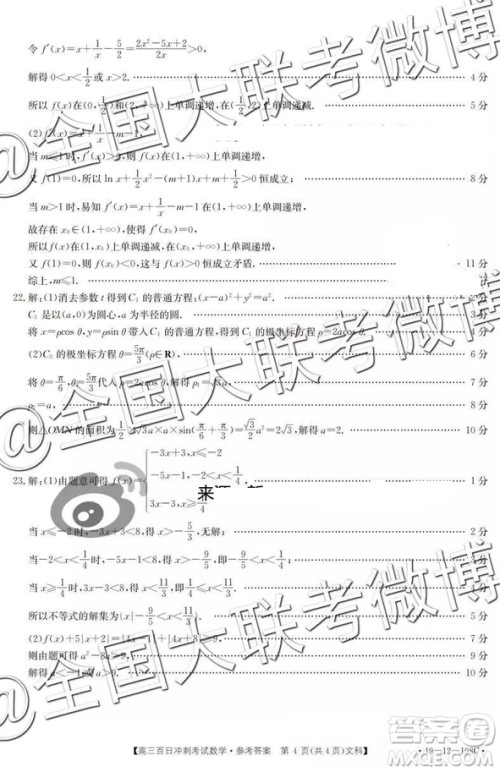 令f′(x)=x+1/x-5/2=(2x²-5x+2)/2x>0,
解得0<x<1/2或x>2. 4分
所以f(x)在(0,1/2)和(2,+∞)上单调递增,在(1/2,2)上单调递减. 5分
(2)f′(x)=x+1/x-m-1,
当m≤1时,f′(x)>0,则f(x)在(1,+∞)上单调递增,
又f(1)=0,所以ln x+1/2x²-(m+1)x+m+1/2>0恒成立; 8分
当m>1时,易知f′(x)=x+1/x-m-1在(1,+∞)上单调递增,
故存在x₀∈(1,+∞),使得f′(x₀)=0,
所以f(x)在(1,x₀)上单调递减,在(x₀,+∞)上单调递增,
又f(1)=0,则f(x₀)<0,这与f(x)>0恒成立矛盾. 11分
综上,m≤1.
22.解:(1)消去参数t得到C₁的普通方程:(x-a)²+y²=a².
C₁是以(a,0)为圆心,a为半径的圆.
将x=ρcosθ,y=ρsinθ带入C₁的普通方程,得到C₁的极坐标方程ρ=2acosθ.
(2)C₂的极坐标方程θ=5π/3(ρ∈R),
将θ=π/6,θ=5π/3代入ρ=2acosθ,解得ρ₁=√3a,
ρ₂=a,
则△OMN的面积为1/2×√3a×a×sin(π/6+π/3)=√3/2a²=2√3,解得a=2. 10分
23.解:(1)由题意可得f(x)={-3x+3,x≤-2
-5x-1,-2<x<1/4,
3x-3,x≥1/4 1分
当x≤-2时,-3x+3<8,得x>-5/3,无解;
当-2<x<1/4时,-5x-1<8,得x>-9/5,即-9/5<x<1/4;
当x≥1/4时,3x-3<8,得x<11/3,即1/4≤x<11/3.
所以不等式的解集为(-9/5,11/3).
(2)f(x)+5|x+2|=|4x-1|+|4x+8|≥9,
则由题可得a²-8a>9,
解得a<-1或a>9. 10分
【高三百日冲刺考试数学·参考答案 第4页(共4页)文科】
·19-12-198C·
@全国大联考微博
@全国大联考微博